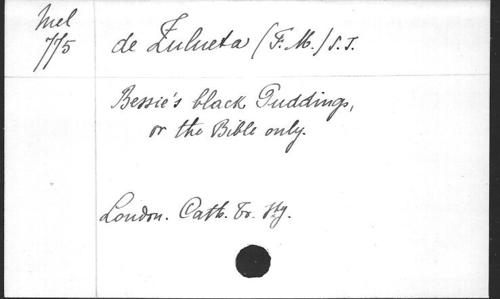 Mel
775
de Zulueta (F. M.) S. J.
Bessie's black Puddings,
or the Bible only.
London. Cath. Tr. Sty.